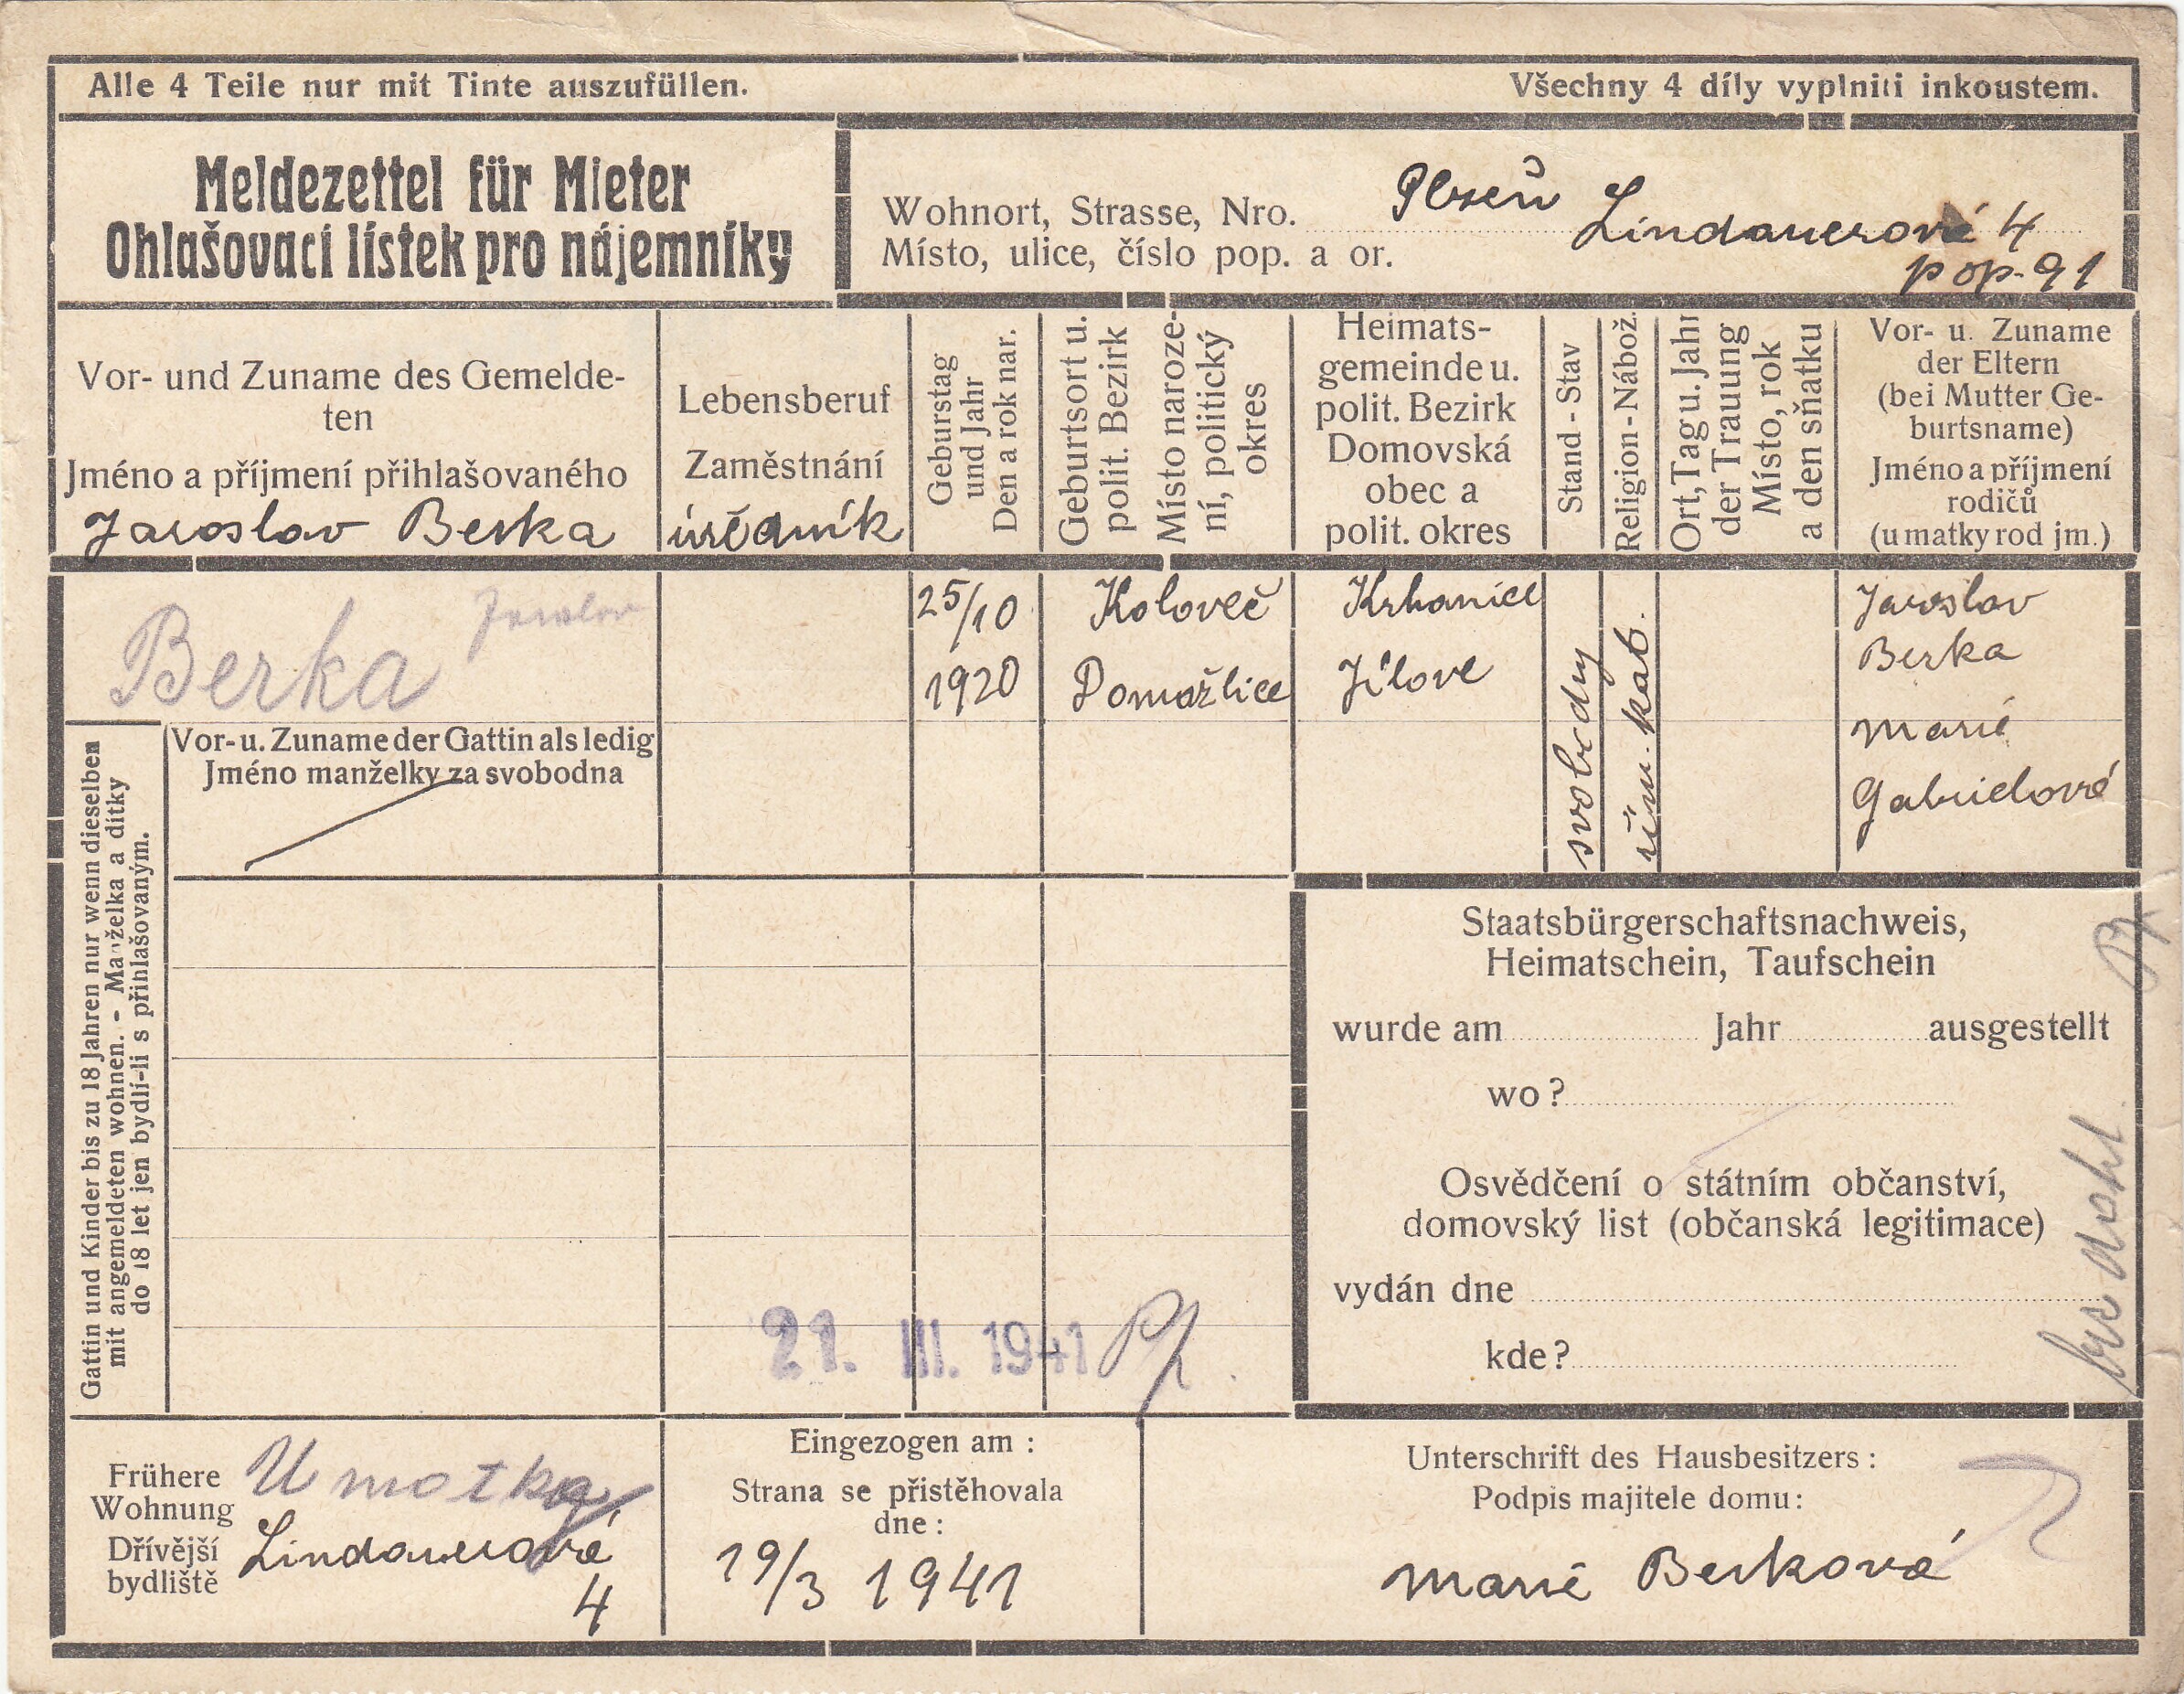 Alle 4 Teile nur mit Tinte auszufüllen.
Všechny 4 díly vyplniti inkoustem.
Meldezettel für Mieter
Ohlašovací lístek pro nájemníky
Wohnort, Strasse, Nro.
Místo, ulice, číslo pop. a or.
Plzeň Lindauerová 4
pop. 91
Vor- und Zuname des Gemelde-
ten
Jméno a příjmení přihlašovaného
Jaroslav Berka
Lebensberuf
Zaměstnání
úředník
Geburstag
und Jahr
Den a rok nar.
Geburtsort u.
polit. Bezirk
Místo naroze-
ní, politický
okres
Heimats-
gemeinde u.
polit. Bezirk
Domovská
obec a
polit. okres
Stand - Stav
Religion - Nábož.
Ort, Tag u. Jahr
der Trauung
Místo, rok
a den sňatku
Vor- u. Zuname
der Eltern
(bei Mutter Ge-
burtsname)
Jméno a příjmení
rodičů
(u matky rod jm.)
Berka Jaroslav
25/10
1920
Koloveč
Domažlice
Krhanice
Jílove
svobodný
řím. kat.
Jaroslav
Berka
Marie
Gabrielová
Vor- u. Zuname der Gattin als ledig
Jméno manželky za svobodna
Gattin und Kinder bis zu 18 Jahren nur wenn dieselben
mit angemeldeten wohnen. - Manželka a dítky
do 18 let jen bydlí-li s přihlašovaným.
Staatsbürgerschaftsnachweis,
Heimatschein, Taufschein
wurde am Jahr ausgestellt
wo?
Osvědčení o státním občanství,
domovský list (občanská legitimace)
vydán dne
kde?
21. III. 1941
Frühere
Wohnung
Dřívější
bydliště
U matky
Lindauerová
4
Eingezogen am :
Strana se přistěhovala
dne :
19/3 1941
Unterschrift des Hausbesitzers :
Podpis majitele domu :
Marie Berková